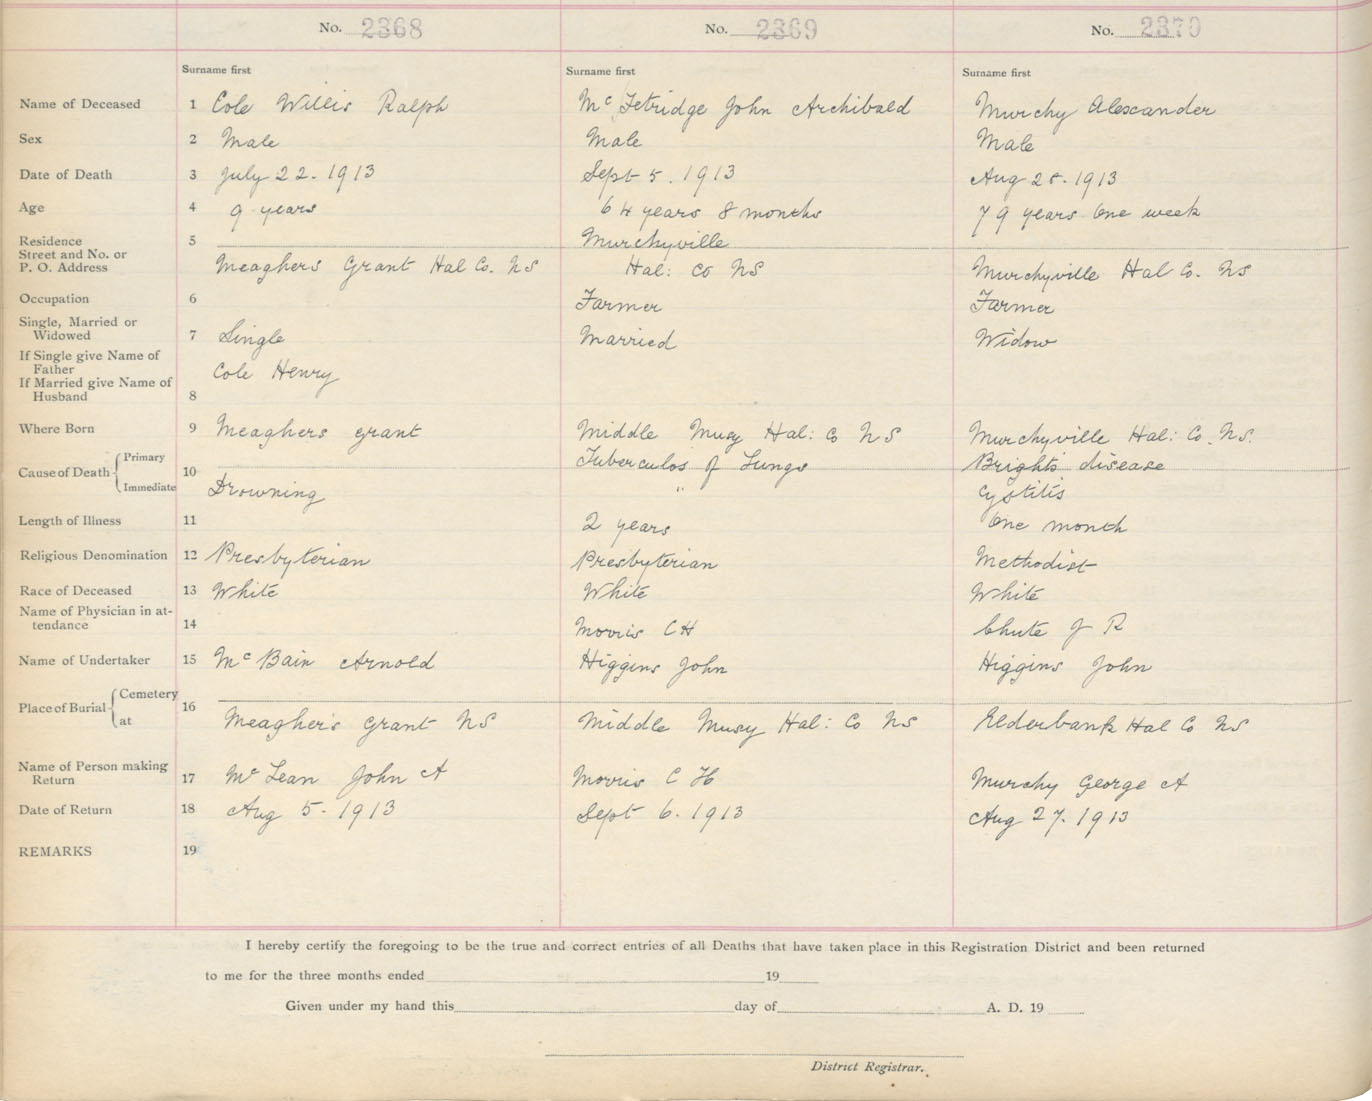 No. 2368 No. 2369 No. 2370
Surname first Surname first Surname first
Name of Deceased 1 Cole Willis Ralph Mc Fetridge John Archibald Murchy Alexander
Sex 2 Male Male Male
Date of Death 3 July 22. 1913 Sept 5. 1913 Aug 28. 1913
Age 4 9 years 64 years 8 months 79 years One week
Residence 5 Murchyville
Street and No. or
P. O. Address Meaghers Grant Hal Co. NS Hal: Co NS Murchyville Hal Co. NS
Occupation 6 Farmer Farmer
Single, Married or
Widowed 7 Single Married Widow
If Single give Name of
Father Cole Henry
If Married give Name of
Husband 8
Where Born 9 Meaghers grant Middle Musy Hal: Co NS Murchyville Hal: Co. NS.
Cause of Death Primary 10 Tuberculos of Lungs Brights disease
Immediate Drowning " Cystitis
Length of Illness 11 2 years One month
Religious Denomination 12 Presbyterian Presbyterian Methodist
Race of Deceased 13 White White White
Name of Physician in at-
tendance 14 Morris C H Chute J R
Name of Undertaker 15 Mc Bain Arnold Higgins John Higgins John
Place of Burial Cemetery 16
at Meagher's Grant NS Middle Musy Hal: Co NS Elderbank Hal Co NS
Name of Person making
Return 17 Mc Lean John A Morris C H Murchy George A
Date of Return 18 Aug 5. 1913 Sept 6. 1913 Aug 27. 1913
REMARKS 19
I hereby certify the foregoing to be the true and correct entries of all Deaths that have taken place in this Registration District and been returned
to me for the three months ended 19
Given under my hand this day of A. D. 19
District Registrar.